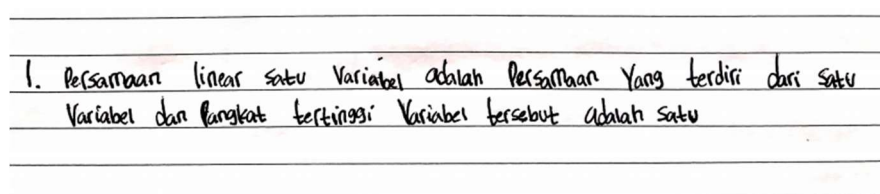 1. Persamaan linear satu Variabel adalah Persamaan Yang terdiri dari satu
Variabel dan Pangkat tertinggi Variabel tersebut adalah satu